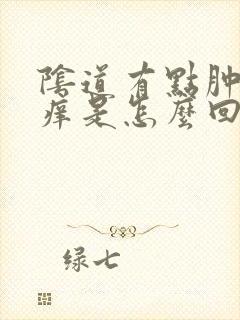 陰道有點肿
痒是怎麼回
绿七